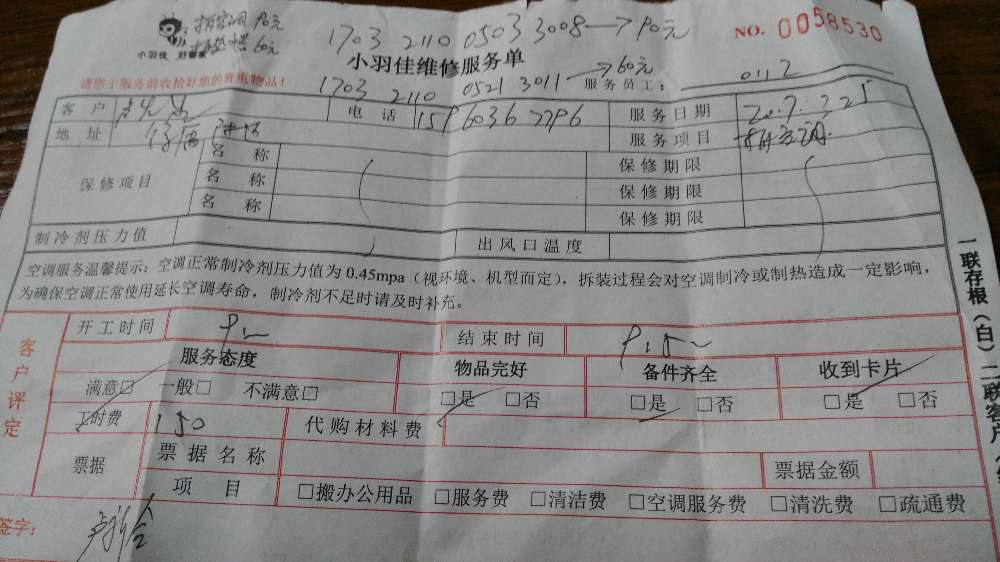 拆空调 90元
60元
1703 2110 0503 3008→90元
NO. 0058530
小羽佳 好管家
小羽佳维修服务单
请您于服务前收拾好您的贵重物品!
1703 2110 0521 3011→60元
服务员工: 0112
客户 电话 159 6036 7796 服务日期
地址 服务项目 拆空调
保修项目 名称 保修期限
名称 保修期限
名称 保修期限
制冷剂压力值 出风口温度
空调服务温馨提示:空调正常制冷剂压力值为0.45mpa(视环境、机型而定),拆装过程会对空调制冷或制热造成一定影响,
为确保空调正常使用延长空调寿命,制冷剂不足时请及时补充。
客户评定
开工时间 结束时间
服务态度 物品完好 备件齐全 收到卡片
满意□ 一般□ 不满意□ □是 □否 □是 □否 □是 □否
工时费 150 代购材料费
票据 票据名称 票据金额
项目 □搬办公用品 □服务费 □清洁费 □空调服务费 □清洗费 □疏通费
签字:
一联存根(白)二联客户